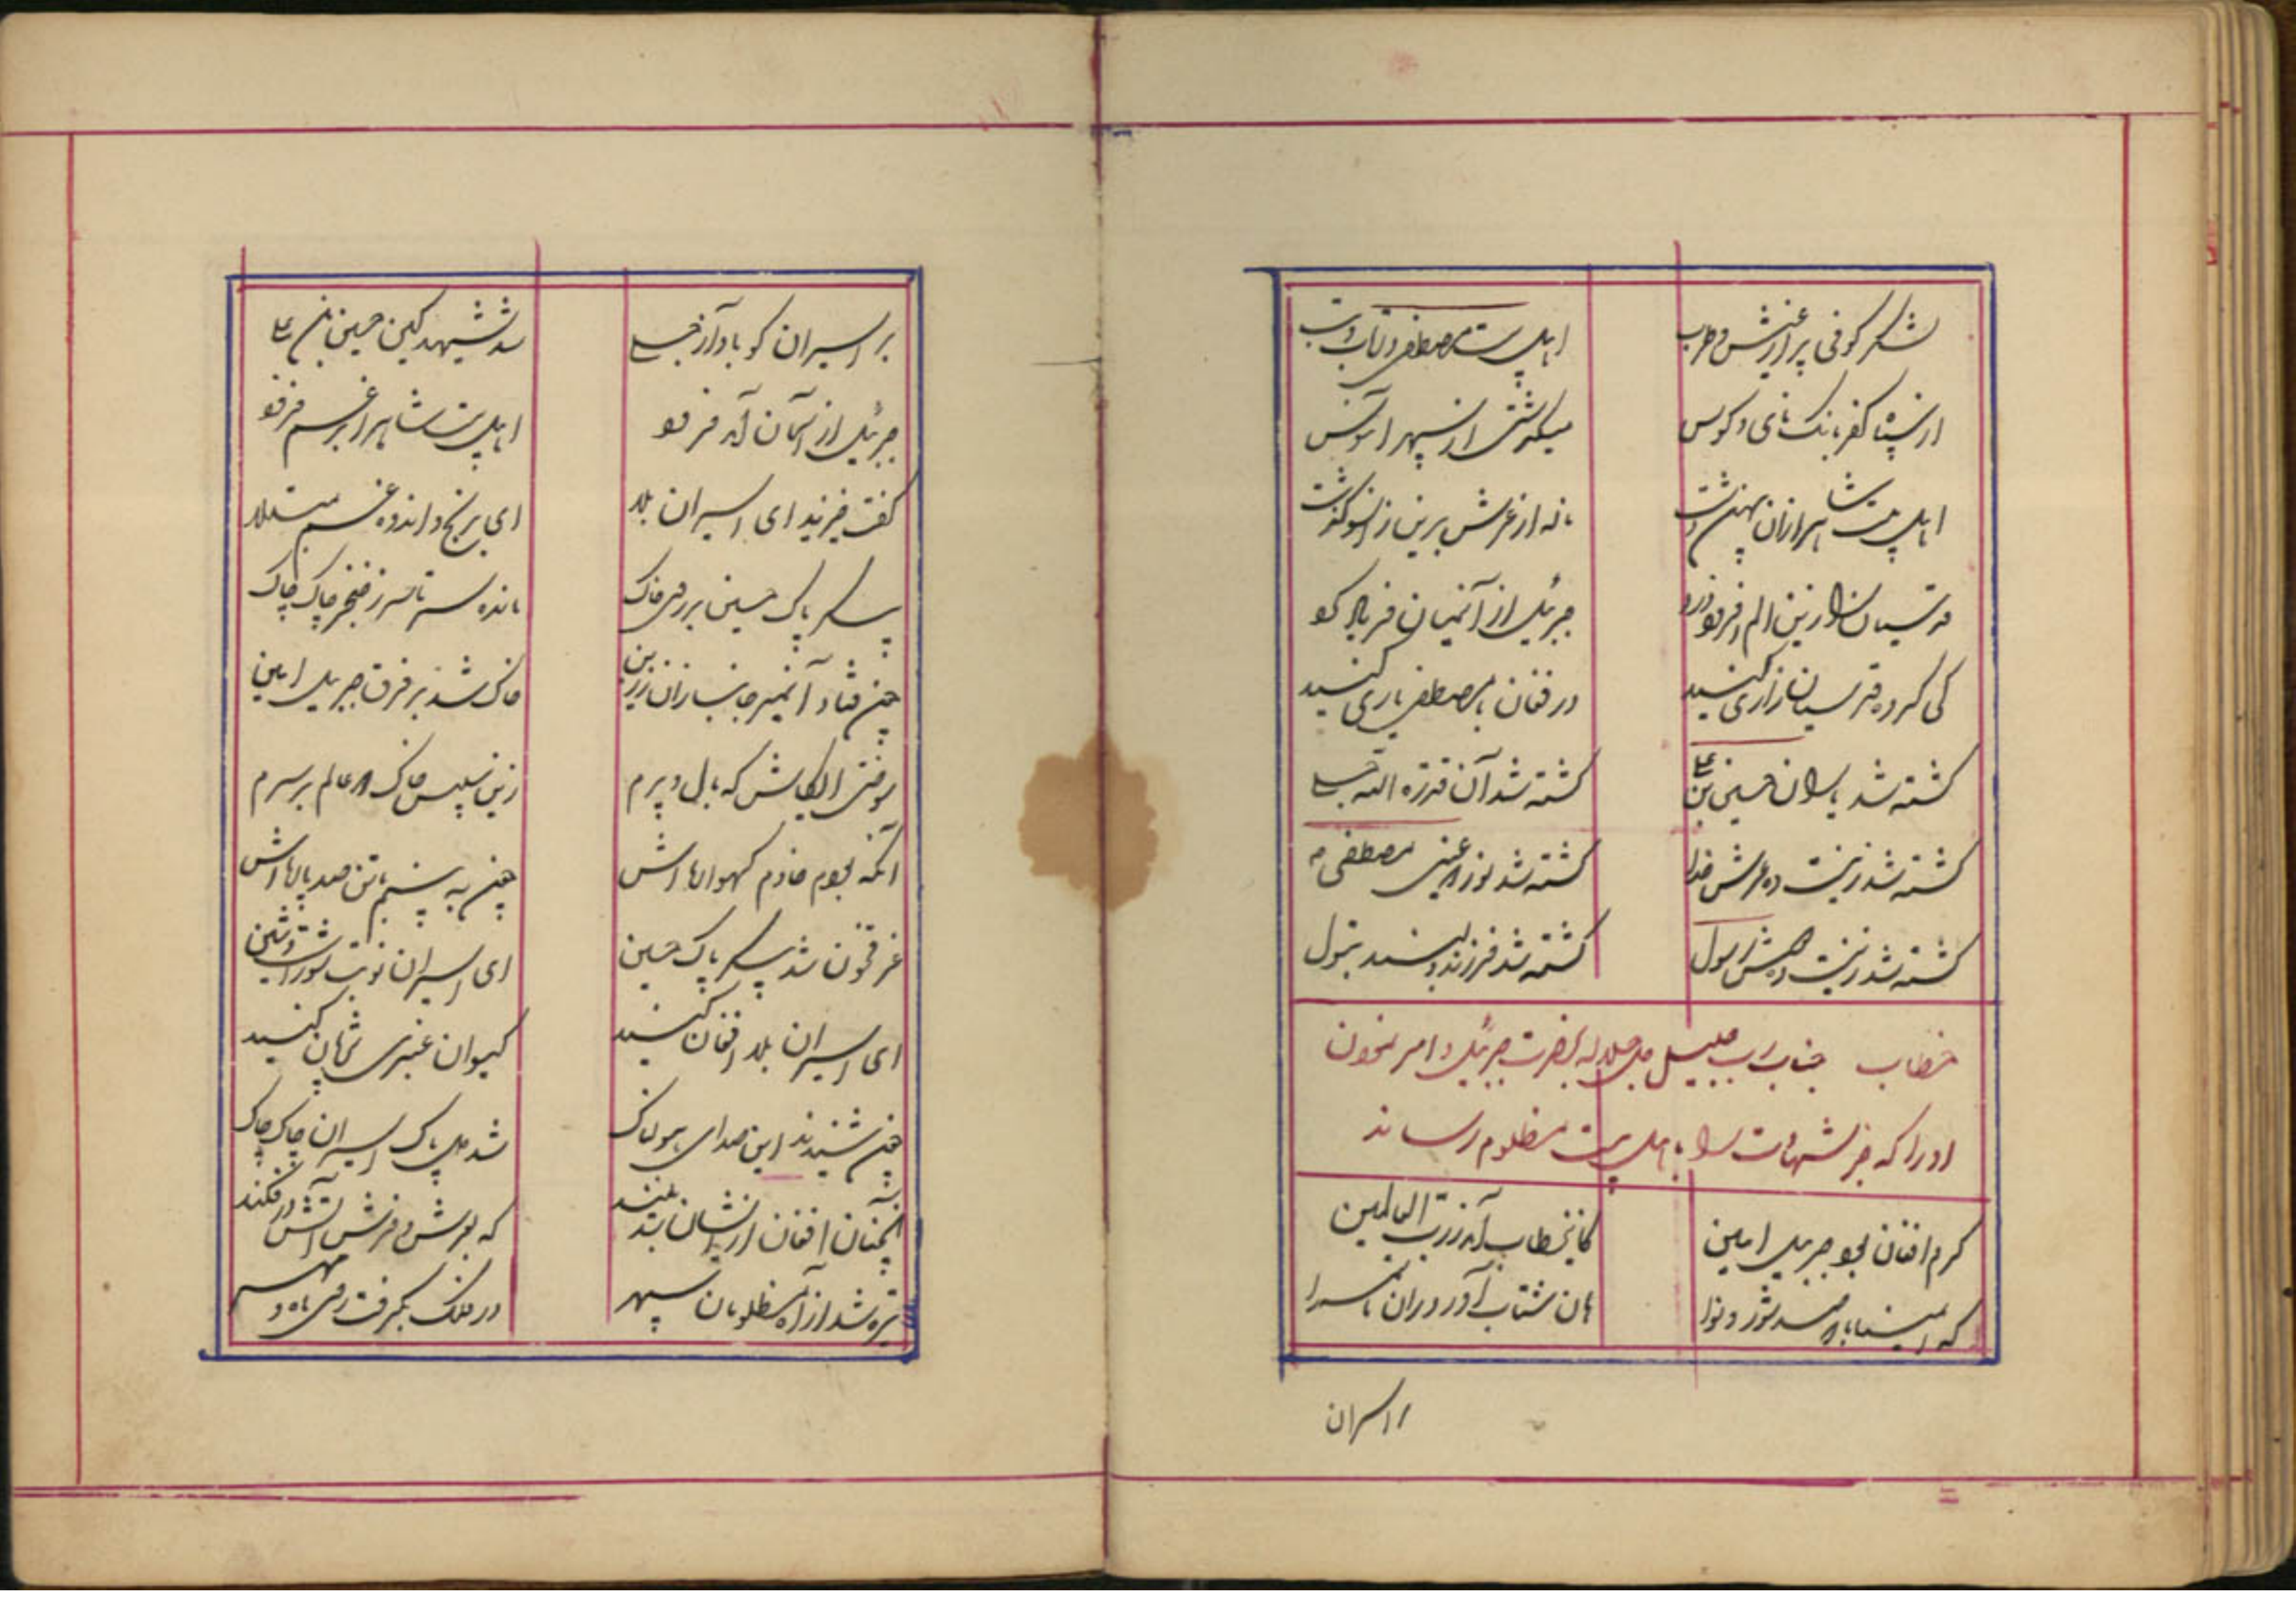 لشکر کوفی پر از عیش و طرب اهل بیت مصطفی در تاب و تب
از سپاه کفر بانک نای و کوس میگذشتی از سپهر آبنوس
اهل بیت شاه را زان پهن دشت ناله از عرش برین زانسو گذشت
قدسیان را زین الم افزود درد جبرئیل از آنمیان فریاد کرد
کی گروه قدسیان زاری کنید در فغان با مصطفی یاری کنید
کشته شد یاران حسین بن علی کشته شد آن قدرة الله جلی
کشته شد زینت ده عرش خدا کشته شد نور دو عین مصطفی
کشته شد زینت ده دوش رسول کشته شد فرزند دلبند بتول
خطاب جناب رب جلیل جل جلاله بحضرت جبرئیل و امر نمودن
او را که خبر شهادت را باهل بیت مظلوم رساند
کرد افغان چو جبریل امین کاین خطاب آمد ز رب العالمین
که امینا با صد شور و نوا هان شتاب آور در آن ماتمسرا
بر اسیران گو باواز جلی شد شهید کین حسین بن علی
جبرئیل از آسمان آمد فرود اهل بیت شاه را بر غم فزود
گفت خیزید ای اسیران بلا ای برنج و اندوه و غم مبتلا
پیکر پاک حسین بر روی خاک مانده سر تا سر ز خنجر چاک چاک
چون فتاد آنمیر جانبازان ز زین خاک شد بر فرق جبریل امین
سوختی ایکاش که بال و پرم زین سپس خاک دو عالم بر سرم
آنکه بودم خادم گهواره اش چون به بینم تن صد پاره اش
غرق خون شد پیکر پاک حسین ای اسیران نوبت شور است و شین
ای اسیران بلا افغان کنید گیسوان عنبری پریشان کنید
چون شنیدند این صدای هولناک شد دل پاک اسیران چاک چاک
آنچنان افغان از ایشان شد بلند که بعرش و فرش آتش در فکند
تیره شد از آه مظلومان سپهر در فلک بگرفت روی ماه و مهر
بر اسیران